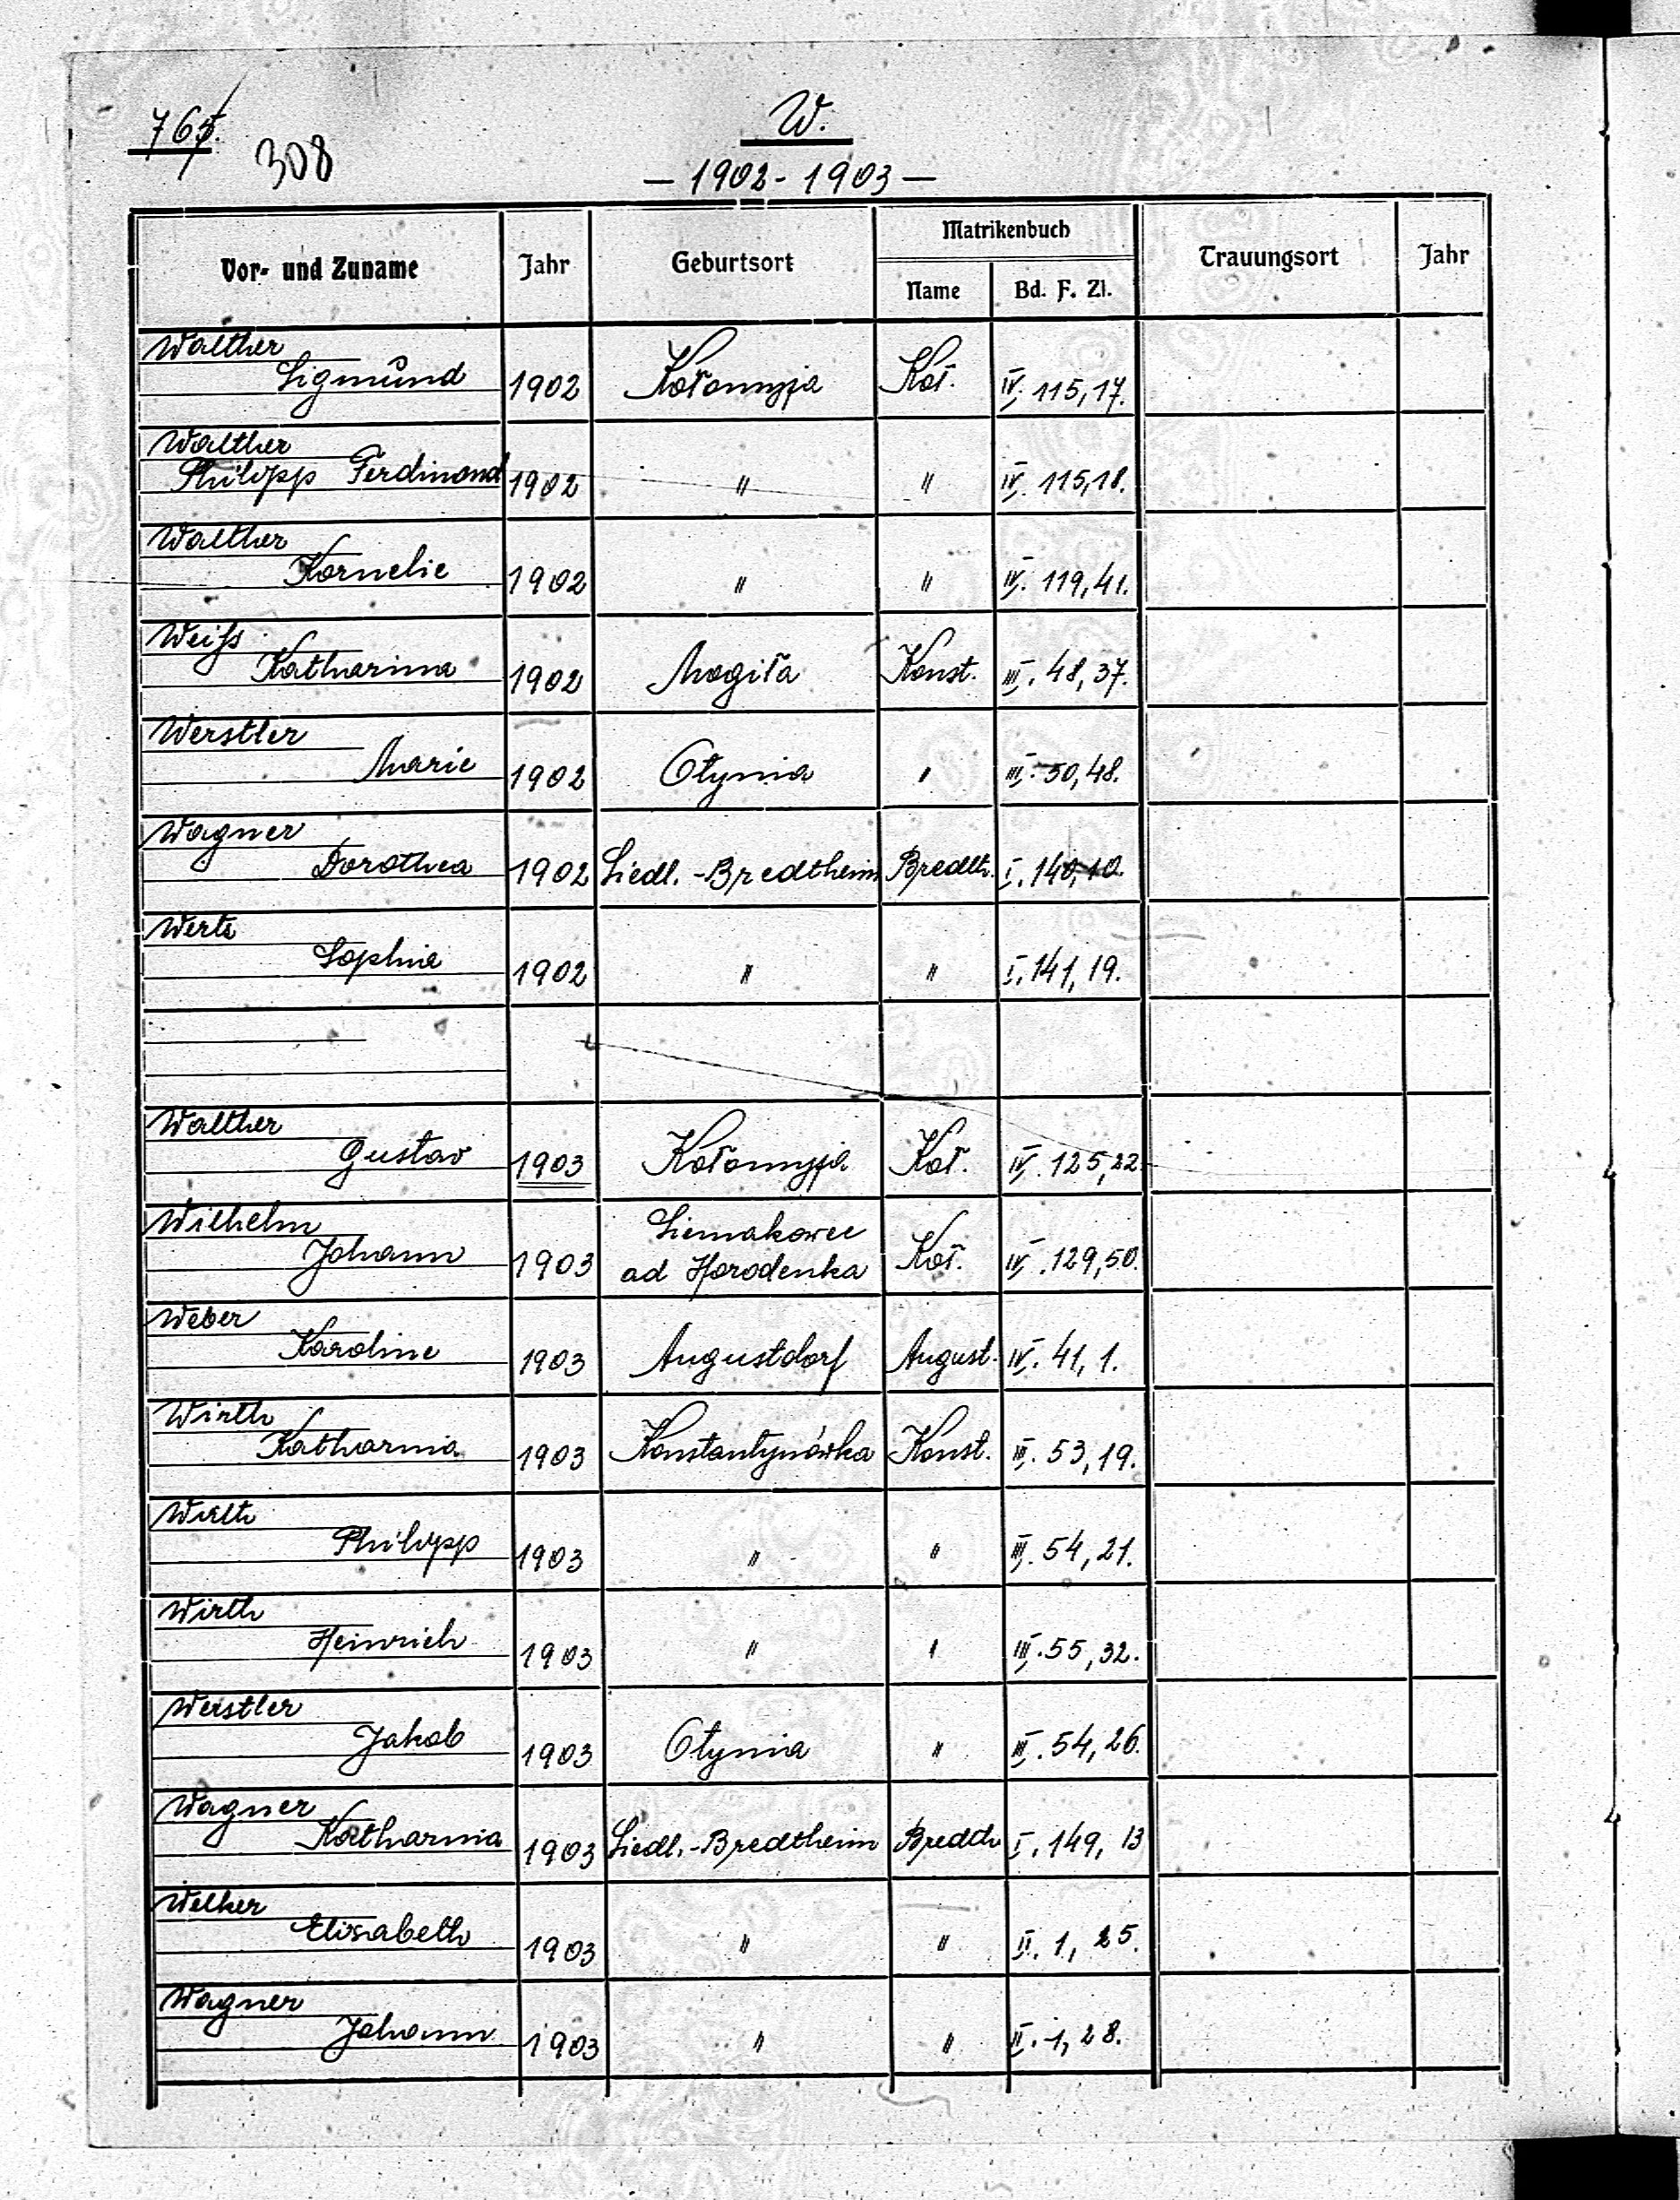 765.
308
W.
— 1902 - 1903 —
Vor- und Zuname Jahr Geburtsort Matrikenbuch Trauungsort Jahr
Name Bd. F. Zl.
Walther
Sigmund 1902 Kołomyja Koł. IV. 115, 17.
Walther
Philipp Ferdinand 1902 " " IV. 115, 18.
Walther
Kornelie 1902 " " IV. 119, 41.
Weiß
Katharina 1902 Mogiła Konst. III. 48, 37.
Werstler
Marie 1902 Otynia " III. 50, 48.
Wagner
Dorothea 1902 Siedl.-Bredtheim Bredth. I. 140, 10.
Sophie 1902 " " I. 141, 19.
Walther
Gustav 1903 Kołomyja Koł. IV. 125, 22
Wilhelm
Johann 1903 Siemakowce
ad Horodenka Koł. IV. 129, 50.
Weber
Karoline 1903 Augustdorf August. IV. 41, 1.
Wirth
Katharina 1903 Konstantynówka Konst. III. 53, 19.
Wirth
Philipp 1903 " " III. 54, 21.
Wirth
Heinrich 1903 " " III. 55, 32.
Werstler
Jakob 1903 Otynia " III. 54, 26.
Wagner
Katharina 1903 Siedl.-Bredtheim Bredth I. 149, 13
Welker
Elisabeth 1903 " " II. 1, 25.
Wagner
Johann 1903 " " II. 1, 28.